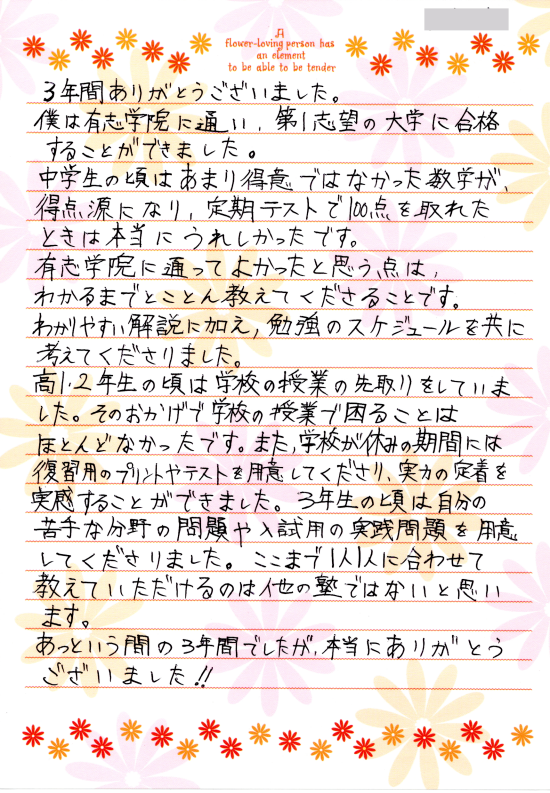 A
flower-loving person has
an element
to be able to be tender
3年間ありがとうございました。
僕は有志学院に通い、第1志望の大学に合格
することができました。
中学生の頃はあまり得意ではなかった数学が、
得点源になり、定期テストで100点を取れた
ときは本当にうれしかったです。
有志学院に通ってよかったと思う点は、
わかるまでとことん教えてくださることです。
わかりやすい解説に加え、勉強のスケジュールを共に
考えてくださりました。
高1・2年生の頃は学校の授業の先取りをしていま
した。そのおかげで学校の授業で困ることは
ほとんどなかったです。また、学校が休みの期間には
復習用のプリントやテストを用意してくださり、実力の定着を
実感することができました。3年生の頃は自分の
苦手な分野の問題や入試用の実践問題を用意
してくださりました。ここまで1人1人に合わせて
教えていただけるのは他の塾ではないと思い
ます。
あっという間の3年間でしたが、本当にありがとう
ございました!!